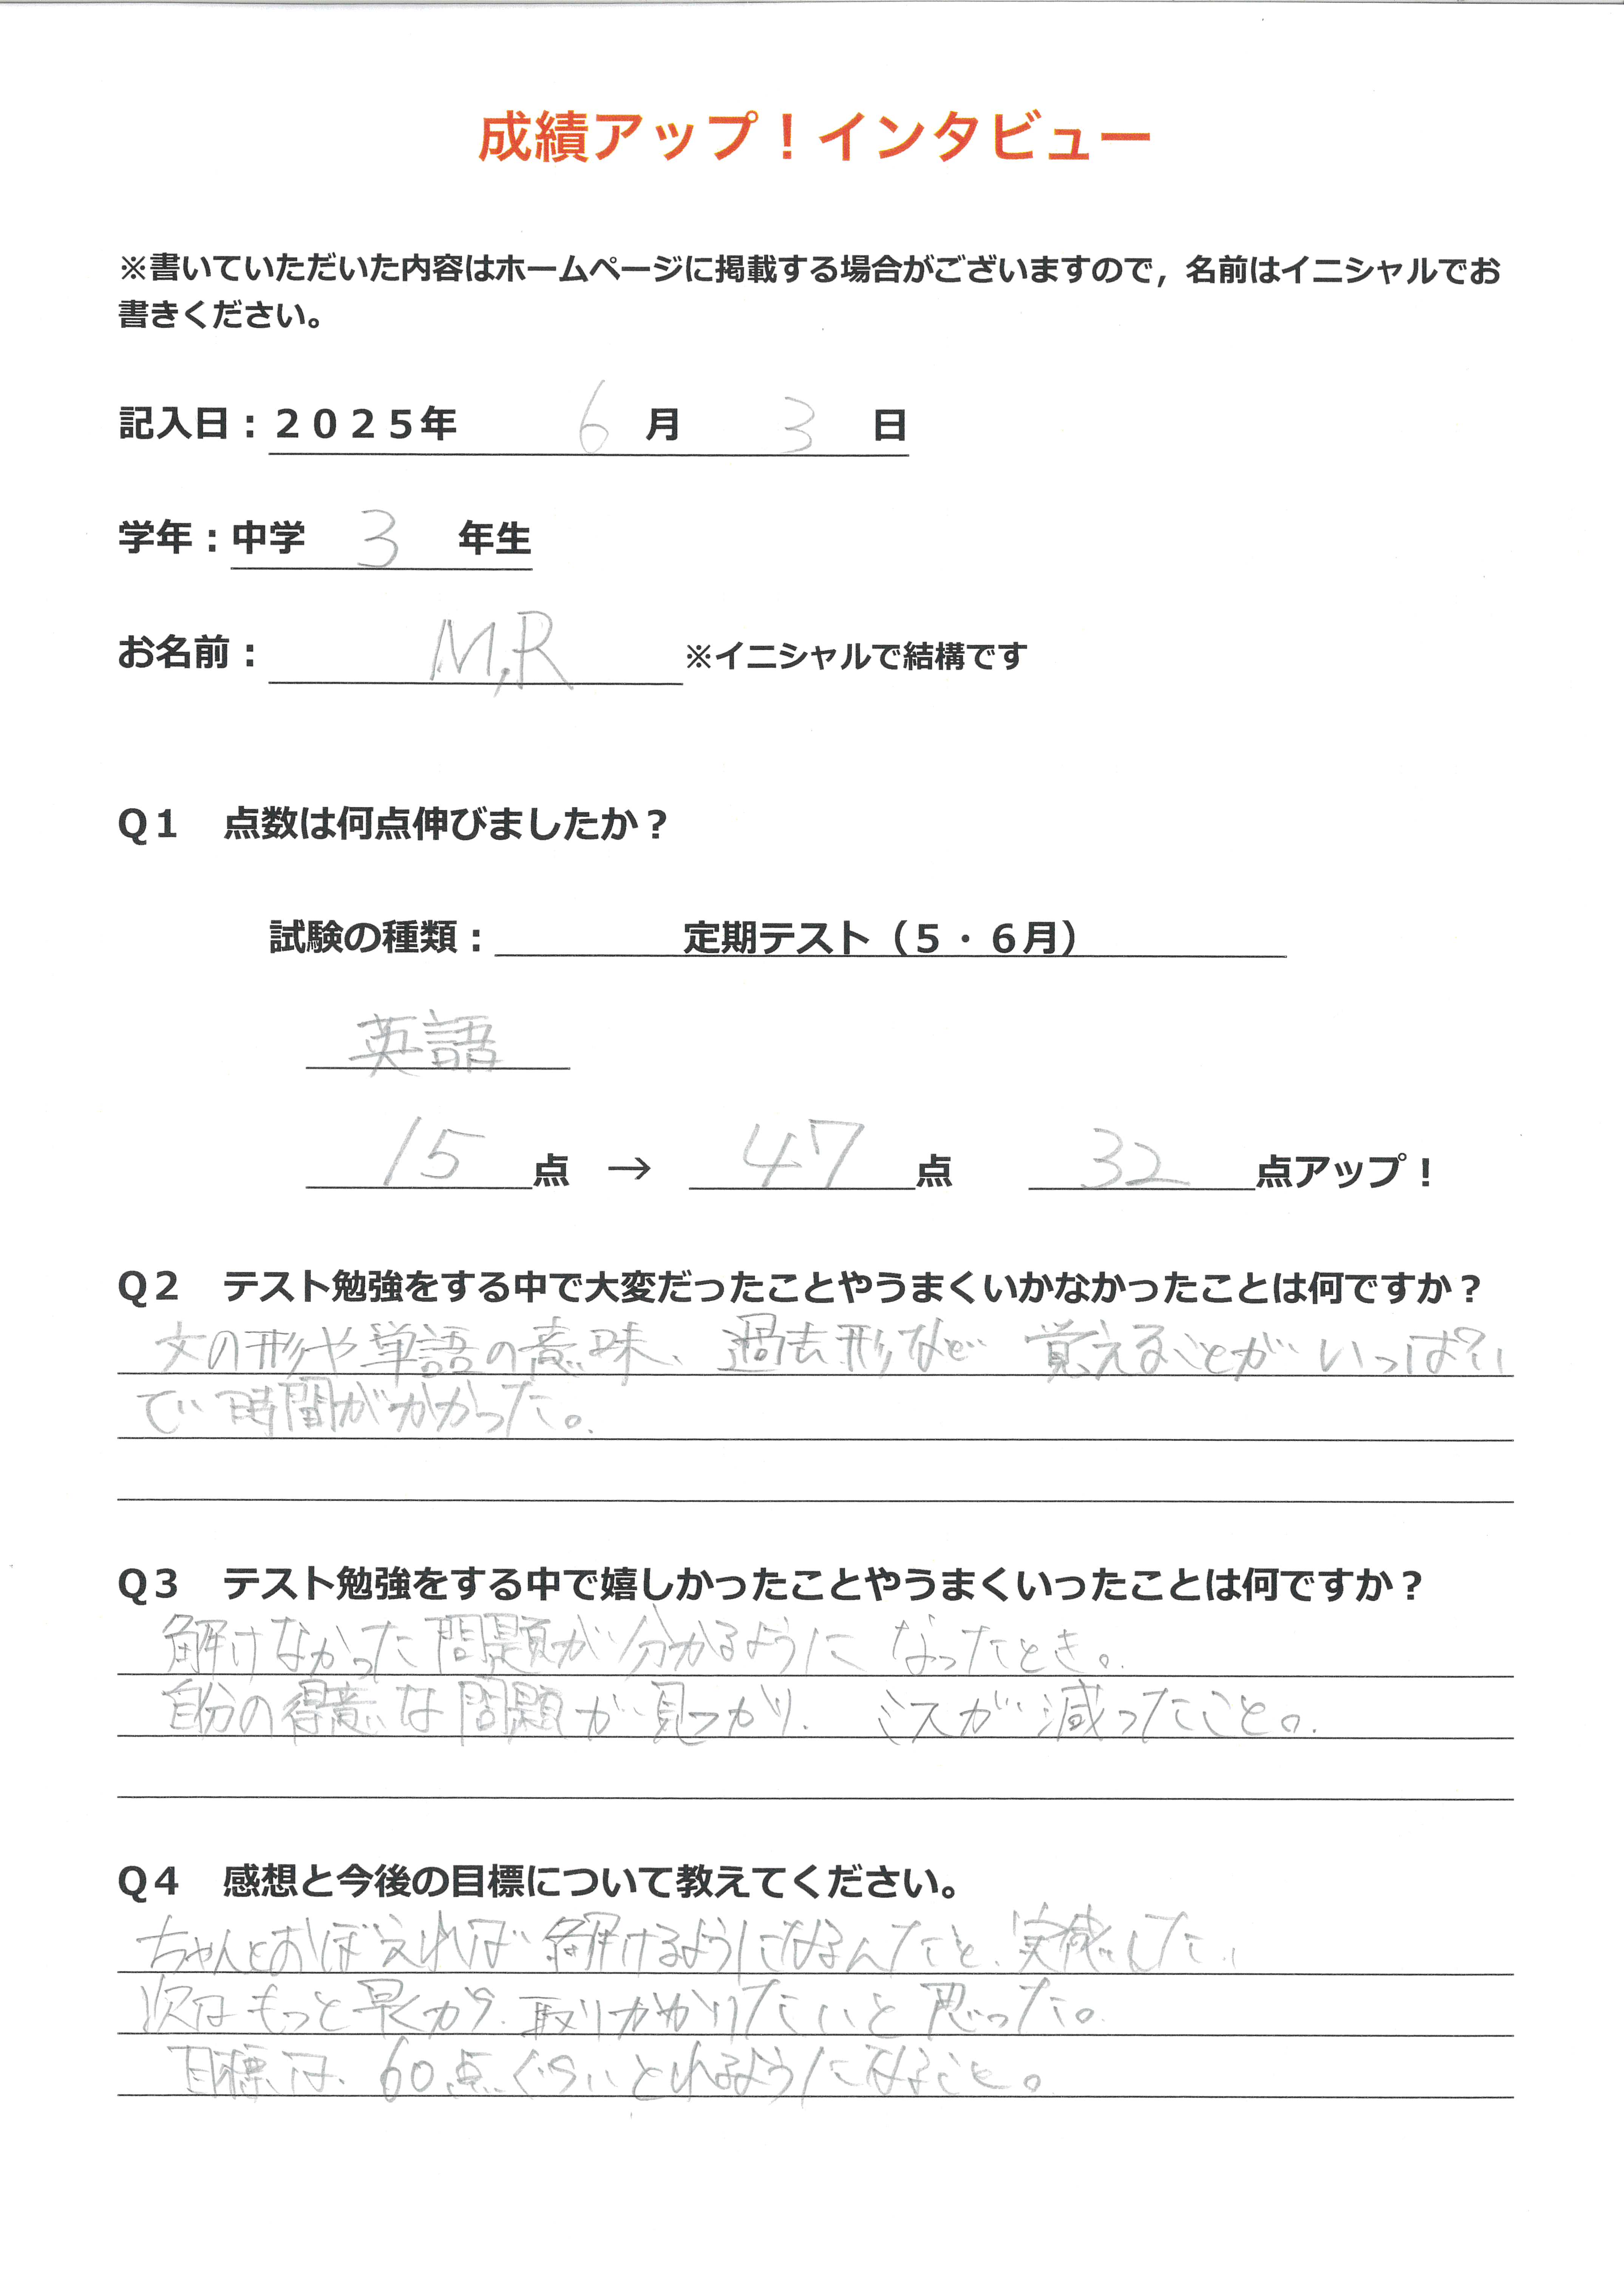 成績アップ！インタビュー
※書いていただいた内容はホームページに掲載する場合がございますので，名前はイニシャルでお
書きください。
記入日：２０２５年 6 月 3 日
学年：中学 3 年生
お名前： M,R ※イニシャルで結構です
Q１ 点数は何点伸びましたか？
試験の種類： 定期テスト（５・６月）
英語
15 点 → 47 点 32 点アップ！
Q２ テスト勉強をする中で大変だったことやうまくいかなかったことは何ですか？
文の形や単語の意味、過去形など 覚えることがいっぱい
で時間がかかった。
Q３ テスト勉強をする中で嬉しかったことやうまくいったことは何ですか？
解けなかった問題が分かるように なったとき。
自分の得意な問題が見つかり、ミスが減ったこと。
Q４ 感想と今後の目標について教えてください。
ちゃんとおぼえれば 解けるようになるんだと、実感した。
次はもっと早くから 取りかかりたいと思った。
目標は、60点ぐらいとれるようになること。